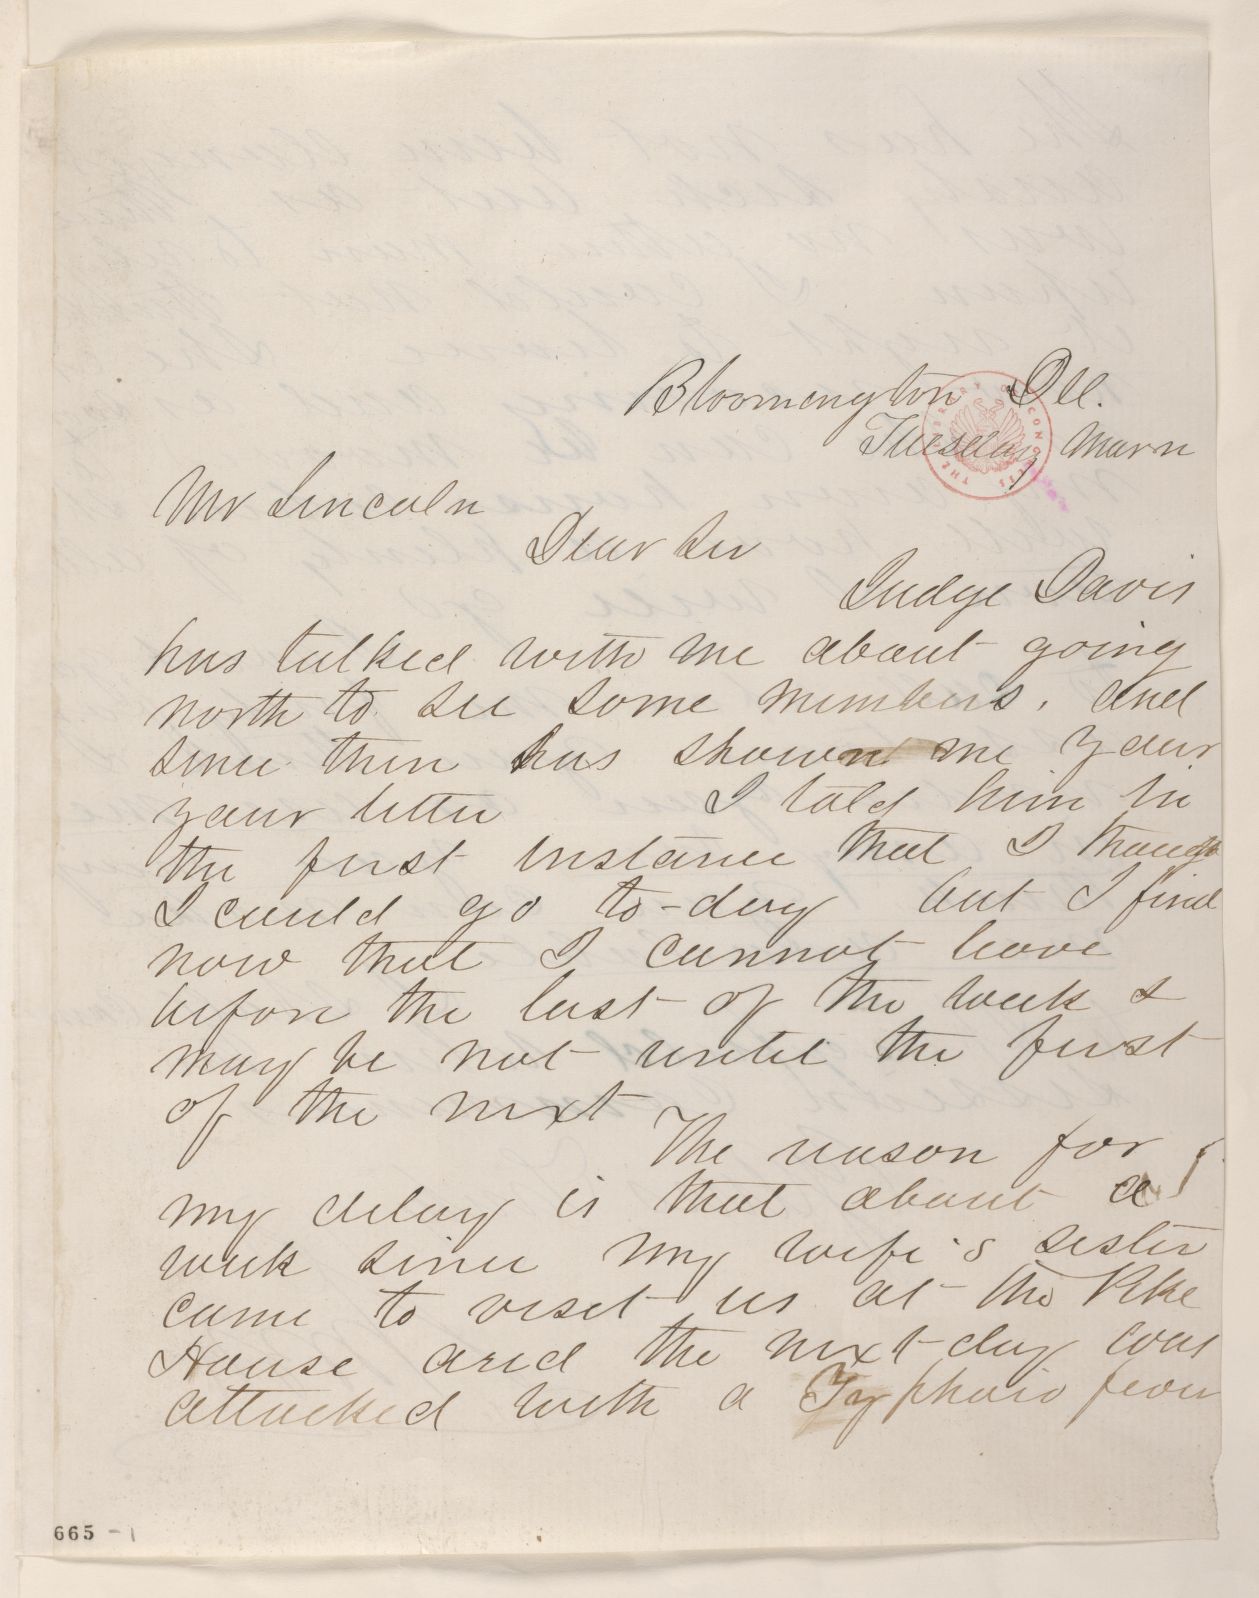 Bloomington Ill.
Tuesday Morn
Mr Lincoln
Dear Sir
Judge Davis
has talked with me about going
north to see some members. and
since then has shown me your
your letter I told him in
the first instance that I thought
I could go to-day but I find
now that I cannot leave
before the last of the week &
may be not until the first
of the next
The reason for
my delay is that about a
week since my wife's sister
came to visit us at the Pike
House and the next day was
attacked with a Typhoid fever
THE LIBRARY OF CONGRESS
665 - 1